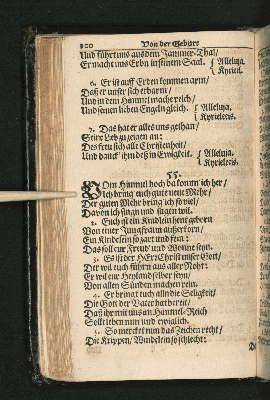 100 Von der Geburt
Und führt uns aus dem Jammer-Thal/
Er macht uns Erbn in seinem Saal. { Alleluja.
{ Kyriel.
6. Er ist auff Erden kommen arm/
Daß er unser sich erbarm/
Und in dem Himmel mache reich/
Und seinen lieben Engeln gleich. { Alleluja.
{ Kyrieleis.
7. Das hat er alles uns gethan/
Seine Lieb zu zeigen an:
Des freu sich alle Christenheit/
Und danck ihm deß in Ewigkeit. { Alleluja.
{ Kyrieleis.
55.
VOm Himmel hoch da komm ich her/
Ich bring euch gute neue Mehr/
Der guten Mehr bring ich so viel/
Davon ich singn und sagen wil.
2. Euch ist ein Kindlein heut geborn
Von einer Jungfraun außerkorn/
Ein Kindelein so zart und fein:
Das soll eur Freud und Wonne seyn.
3. Es ist der HErr Christ unser Gott/
Der wil euch führn aus aller Noht:
Er wil eur Heyland selber seyn/
Von allen Sünden machen rein.
4. Er bringt euch alle die Seligkeit/
Die Gott der Vater hat bereit/
Daß ihr mit uns im Himmel-Reich
Sollt leben nun und ewiglich.
5. So mercket nun das Zeichen recht/
Die Krippen/ Windelein so schlecht: